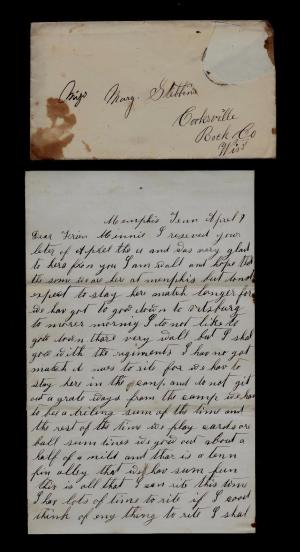 Miss Marg. Stebbins
Cooksville
Rock Co
Wiss
Memphis Tenn April 7
Dear Frien Minnie I reseved your
leter of Aprel the and was very glad
to here from you I am well and hope that
the some we ar her at menphis but do not
expect to stay here match longer for
we hav got to gow down to vitsburg
to morer morning I do not like to
gow down thare very wall but I shal
gow with the rigiments I hav no got
match it nues to rite for we hav to
stay here in the camp and do not get
out a grate ways from the camp we hav
to be a driling sum of the time and
the rest of the time we play cards or
ball sum times we gow out about a
half of a mild and thar is a tenn
pin alley that we hav sum fun
this is all that I can rite this time
I hav lots of time to rite if I cood
think of eny thing to rite I shal